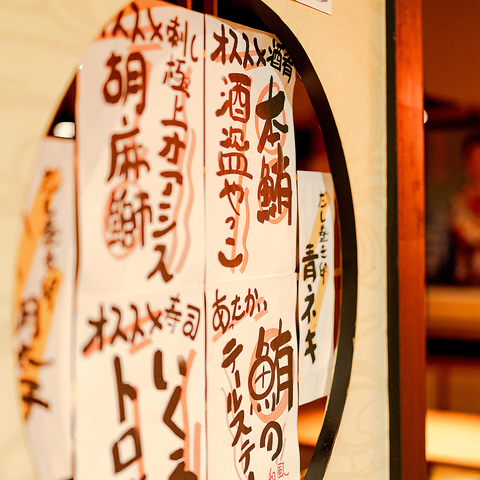 オススメ酒肴
本鮪
酒盗やっこ
オススメ刺し
極上オアシス
胡麻鰤
だし巻き
青ネギ
あたたかい
鮪の
テールステ
和風
オススメ寿司
いくら
トロ